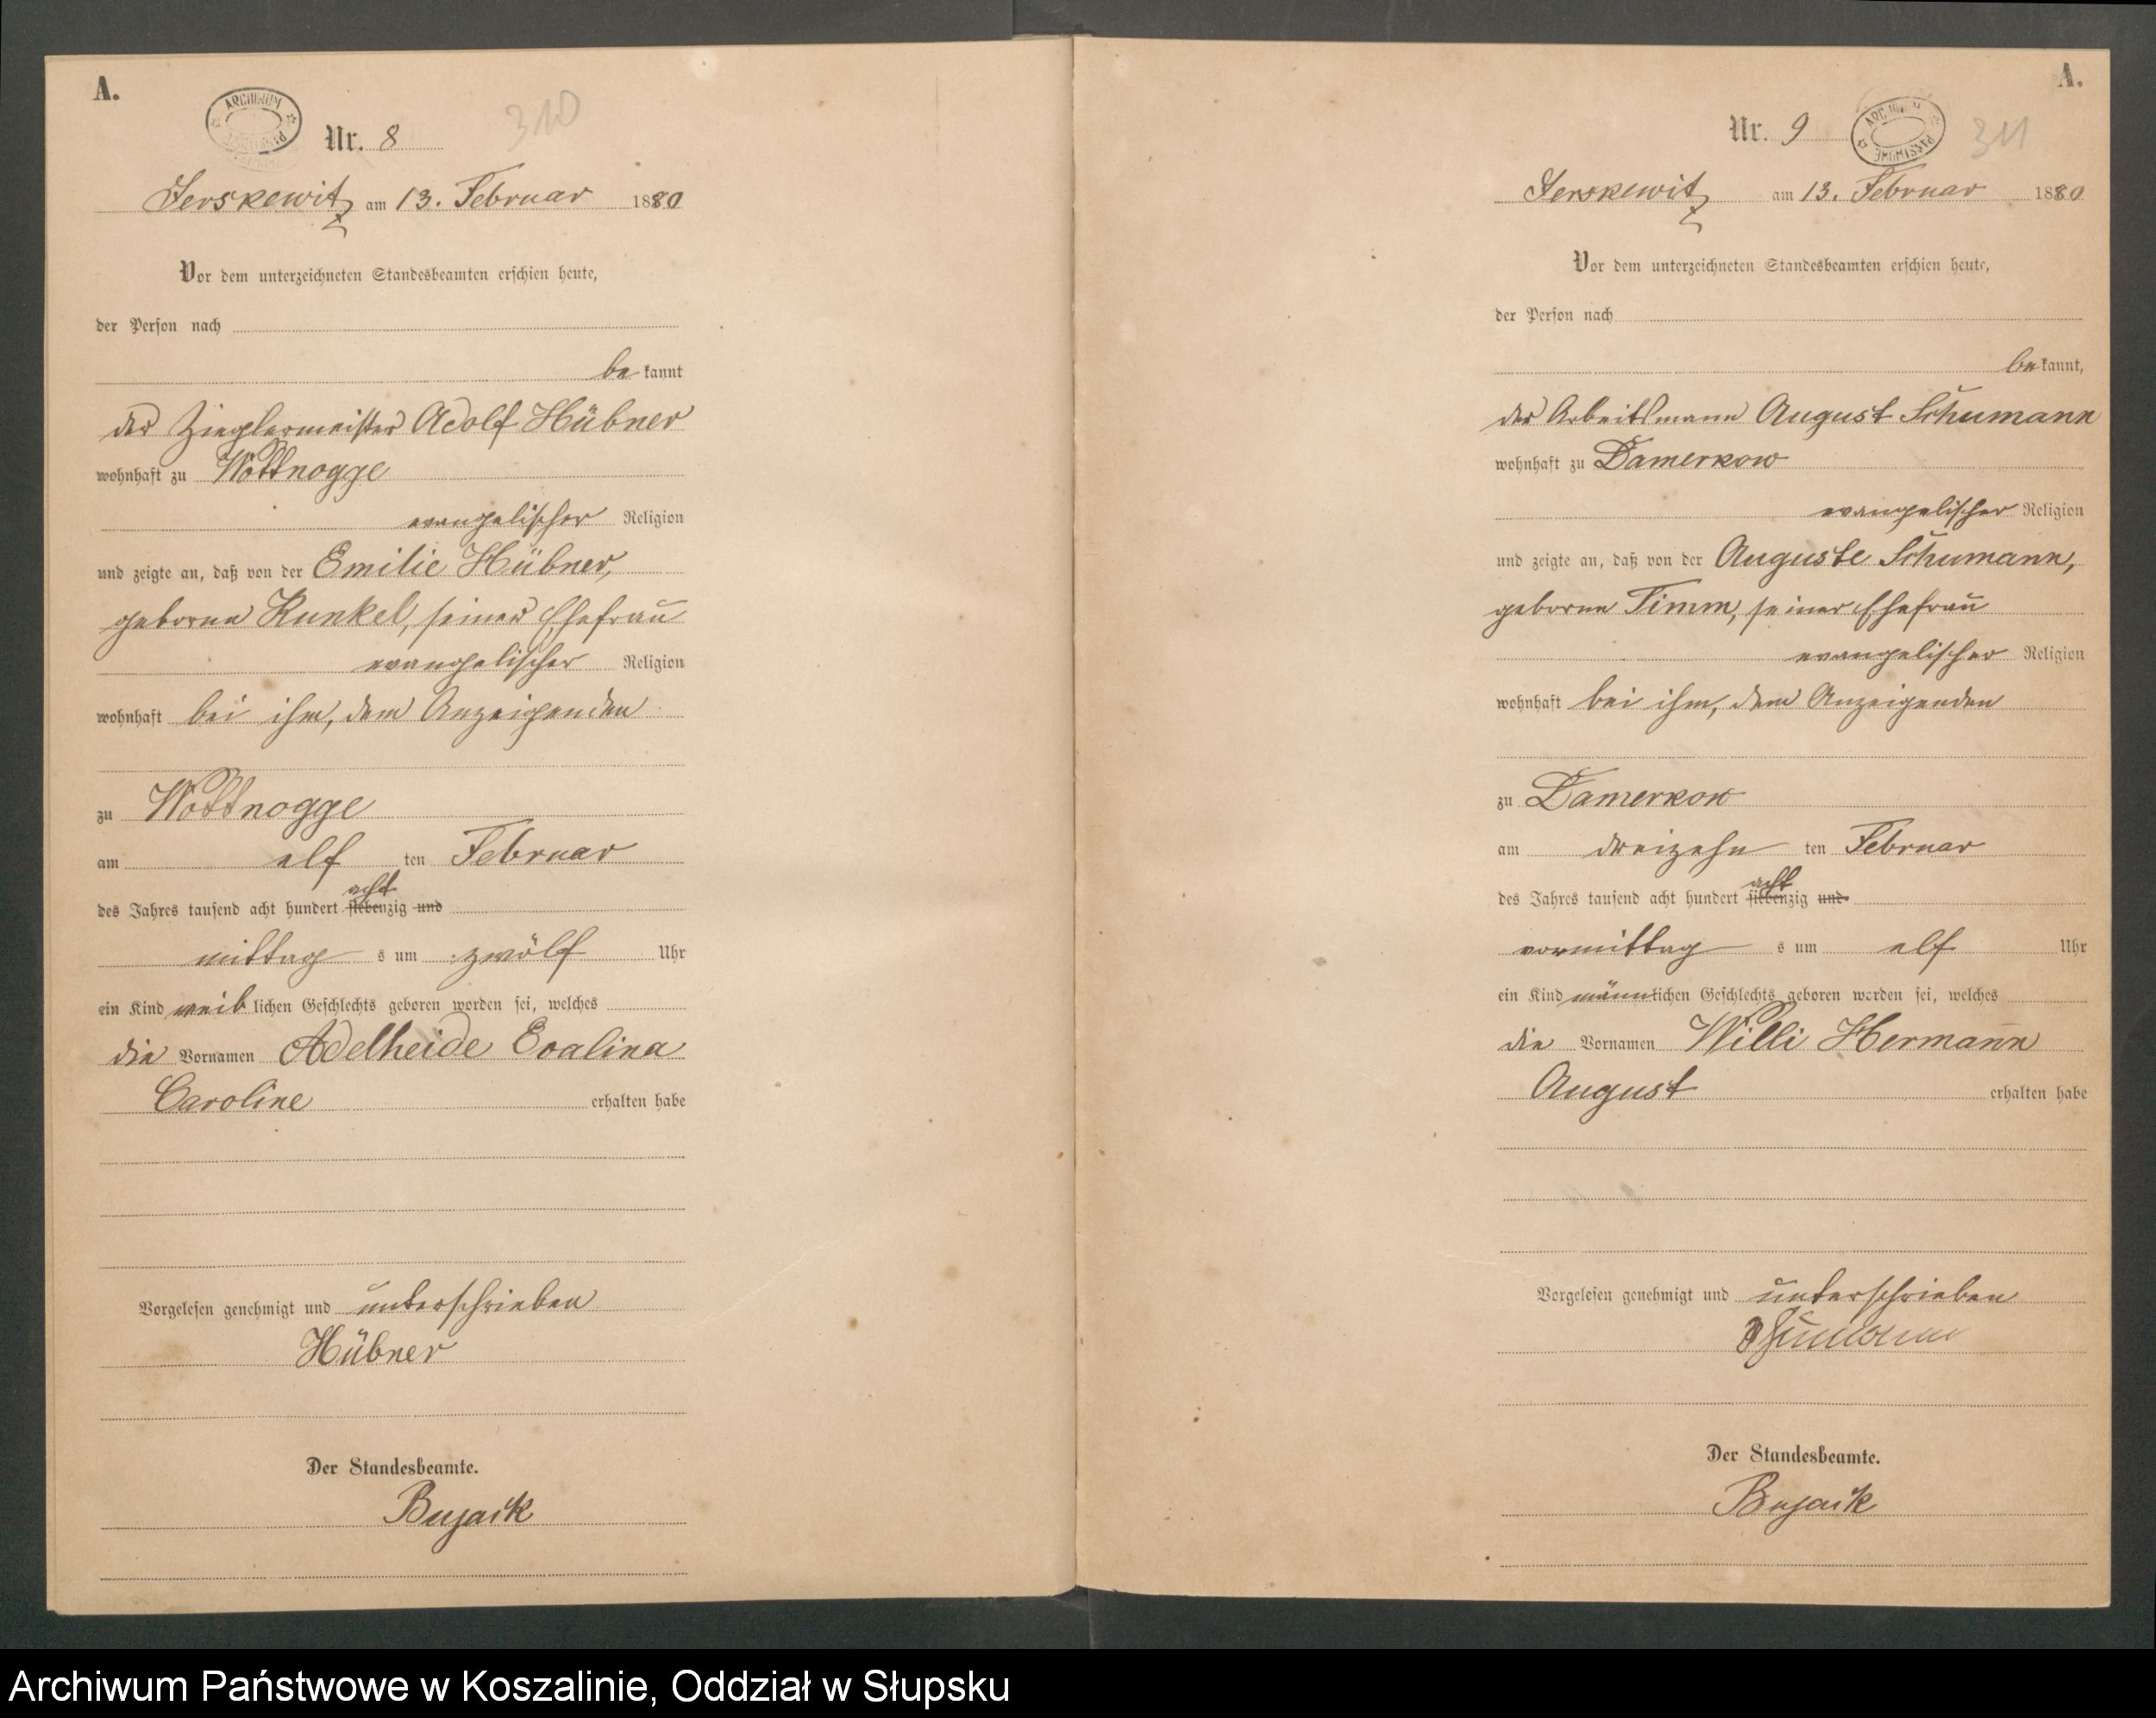 A.
ARCHIWUM PAŃSTWOWE
310
Nr. 8
Jerskewitz am 13. Februar 1880
Vor dem unterzeichneten Standesbeamten erschien heute,
der Person nach
be kannt
der Zieglermeister Adolf Hübner
wohnhaft zu Wottnogge
evangelischer Religion
und zeigte an, daß von der Emilie Hübner,
geborne Kunkel, seiner Ehefrau
evangelischer Religion
wohnhaft bei ihm, dem Anzeigenden
zu Wottnogge
am elf ten Februar
acht
des Jahres tausend acht hundert siebenzig und
mittag s um zwölf Uhr
ein Kind weib lichen Geschlechts geboren worden sei, welches
die Vornamen Adelheide Evalina
Caroline erhalten habe
Vorgelesen genehmigt und unterschrieben
Hübner
Der Standesbeamte.
Bujack
A.
Nr. 9
ARCHIWUM PAŃSTWOWE
311
Jerskewitz am 13. Februar 1880
Vor dem unterzeichneten Standesbeamten erschien heute,
der Person nach
be kannt,
der Arbeitsmann August Schumann
wohnhaft zu Damerkow
evangelischer Religion
und zeigte an, daß von der Auguste Schumann,
geborne Timm, seiner Ehefrau
evangelischer Religion
wohnhaft bei ihm, dem Anzeigenden
zu Damerkow
am dreizehn ten Februar
acht
des Jahres tausend acht hundert siebenzig und
vormittag s um elf Uhr
ein Kind männlichen Geschlechts geboren worden sei, welches
die Vornamen Willi Hermann
August erhalten habe
Vorgelesen genehmigt und unterschrieben
Schumann
Der Standesbeamte.
Bujack
Archiwum Państwowe w Koszalinie, Oddział w Słupsku